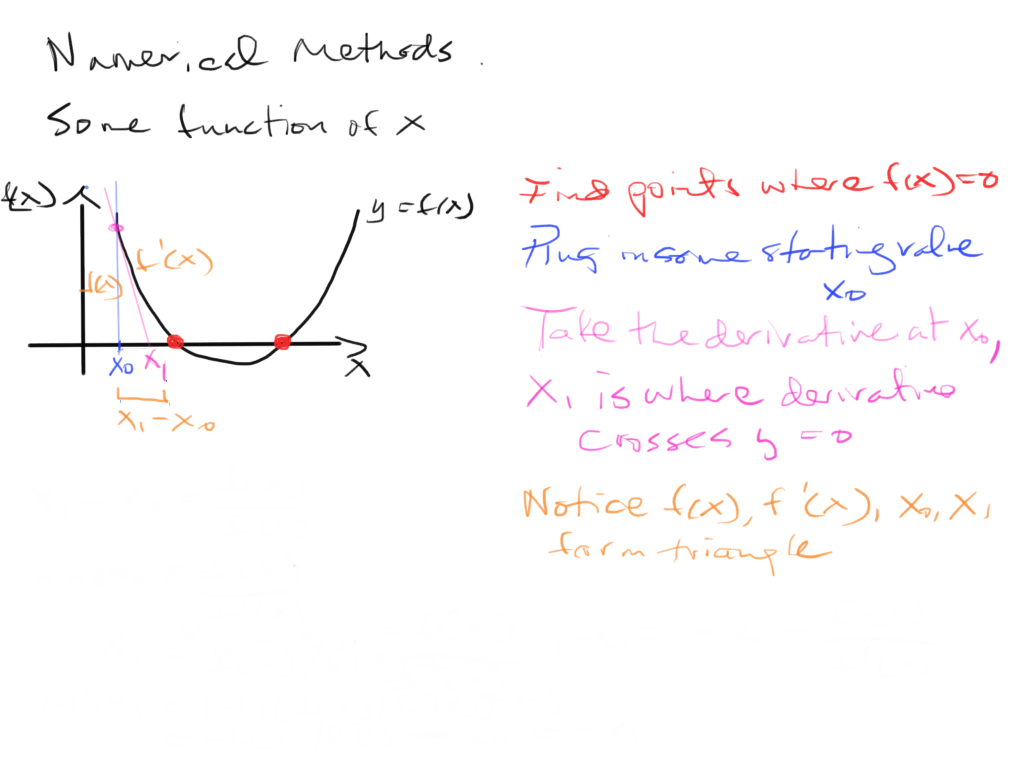 Numerical Methods.
Some function of x
f(x)
y = f(x)
f'(x)
f(x)
x0 x1
x
x1 - x0
Find points where f(x)=0
Plug in some starting value
x0
Take the derivative at x0,
x1 is where derivative
crosses y = 0
Notice f(x), f'(x), x0, x1
form triangle